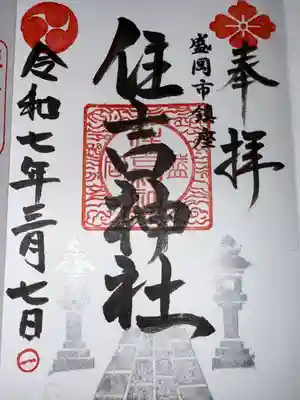 奉拝
盛岡市鎮座
住吉神社
令和七年三月七日